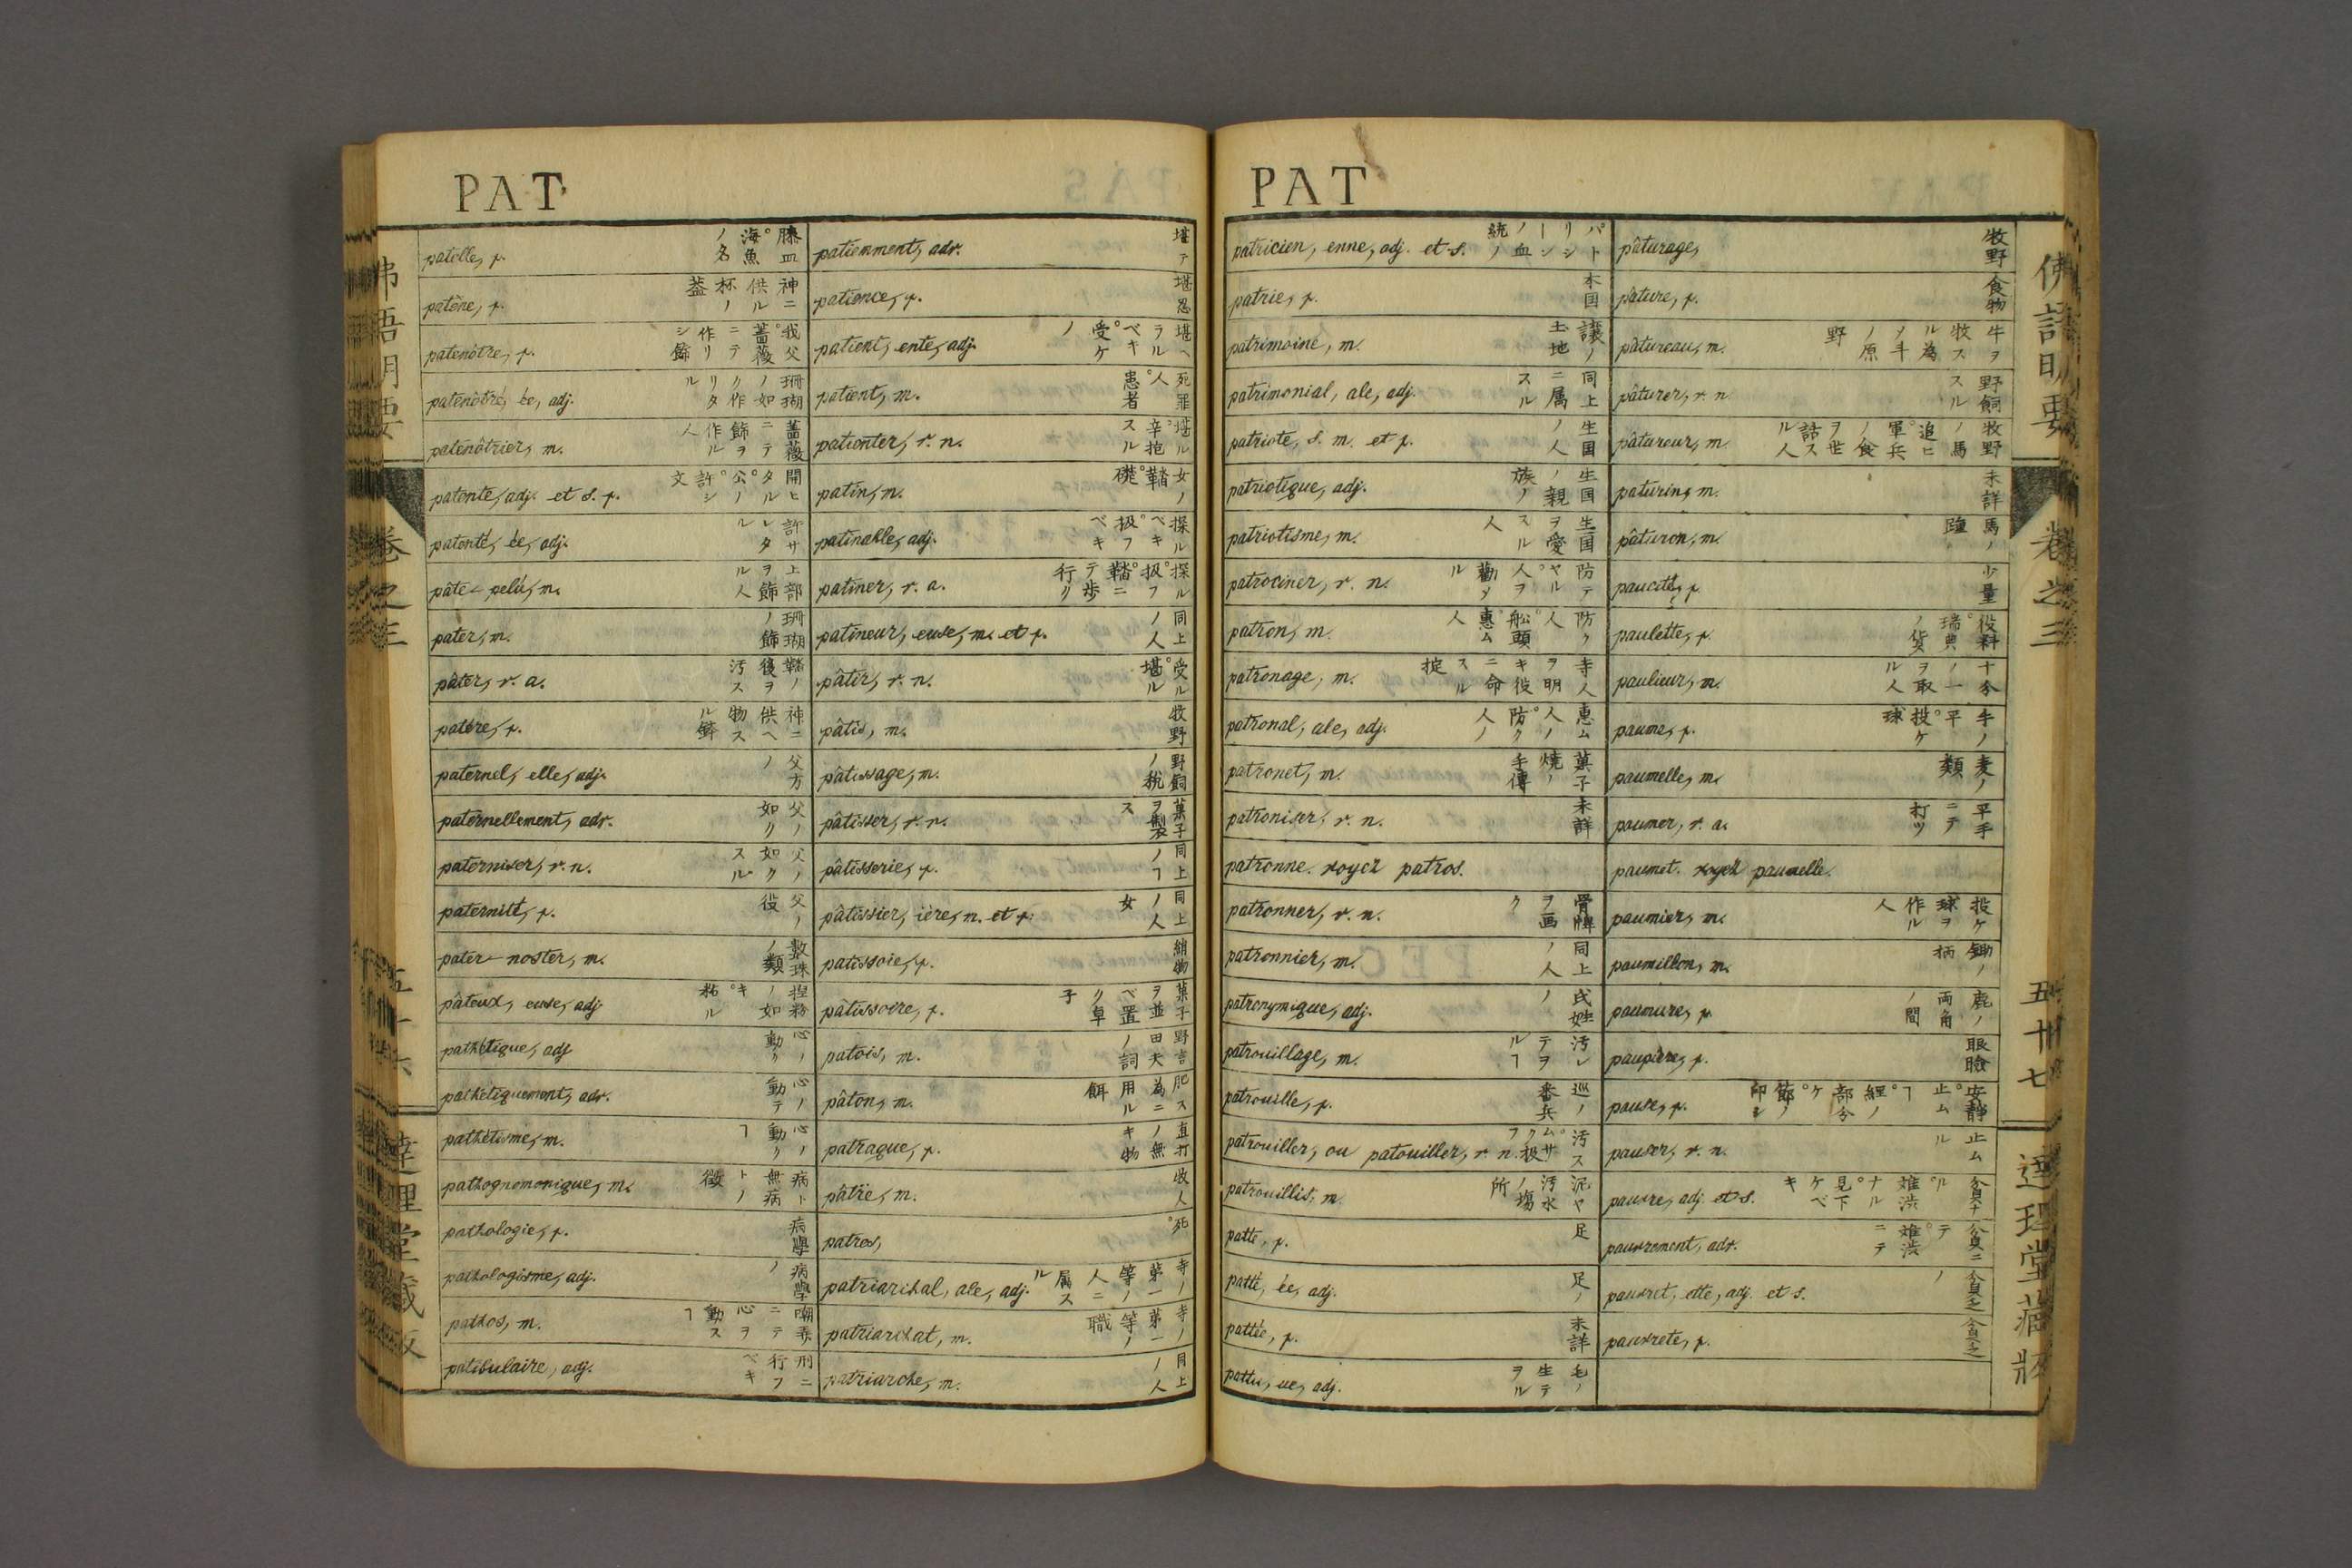 PAT
patelle, f. 膝皿。海魚ノ名
patène, f. 神ニ供ルノ杯蓋
patenôtre, f. 我父。薔薇ニテ作リシ飾
patenôtré, ée, adj. 珊瑚ノ如ク作リタル
patenôtrier, m. 薔薇ニテ飾ヲ作ル人
patente, adj. et s. f. 開ヒタル。公ノ。許シ文
patenté, ée, adj. 許サレタル
pâte-pelú, m. 上部ヲ飾ル人
pater, m. 珊瑚ノ飾
pâter, v. a. 鞜ノ後ヲ汚ス
patère, f. 神ニ供ヘ物スル鉢
paternel, elle, adj. 父方ノ
paternellement, adv. 父ノ如ク
paterniser, v. n. 父ノ如クスル
paternité, f. 父ノ役
pater-noster, m. 數珠ノ類
pâteux, euse, adj. 捏粉ノ如キ。粘ル
pathétique, adj. 心ノ動ク
pathétiquement, adv. 心ノ動テ
pathétisme, m. 心ノ動クヿ
pathognomonique, m. 病ト無病トノ徴
pathologie, f. 病學
pathologisme, adj. 病學ノ
pathos, m. 嘲弄ニテ心ヲ動スヿ
patibulaire, adj. 刑ニ行フベキ
patiemment, adv. 堪テ
patience, f. 堪忍
patient, ente, adj. 堪ヘラルベキ。受ケノ
patient, m. 死罪人。患者
patienter, v. n. 堪ル。辛抱スル
patin, m. 女ノ鞜。礎
patinable, adj. 探ルベキ。扱フベキ
patiner, v. a. 探ル。扱フ。鞜ニテ歩行ク
patineur, euse, m. et f. 同上ノ人
pâtir, v. n. 受ル。堪ル
pâtis, m. 牧野
pâtissage, m. 野飼ノ税
pâtisser, v. n. 菓子ヲ製ス
pâtisserie, f. 同上ノヿ
pâtissier, ière, n. et f. 同上ノ人女
patissoie, f. 絹物
pâtissoire, f. 菓子ヲ並ベ置ク卓子
patois, m. 野言田夫ノ詞
pâton, m. 肥ス為ニ用ル餌
patraque, f. 直打ノ無キ物
pâtre, m. 牧人
patres, 死。
patriarchal, ale, adj. 寺ノ第一等ノ人ニ属スル
patriarchat, m. 寺ノ第一等ノ職
patriarche, m. 同上ノ人
PAT
patricien, enne, adj. et s. パトリシーシンノ血統ノ
patrie, f. 本国
patrimoine, m. 譲ノ土地
patrimonial, ale, adj. 同上ニ属スル
patriote, s. m. et f. 生国ノ人
patriotique, adj. 生国ノ親族ノ
patriotisme, m. 生国ヲ愛スル人
patrociner, v. n. 防テヤル。人ヲ勸メル
patron, m. 防ク人。船頭。惠ム人
patronage, m. 寺人ヲ明キ役ニ命スル掟
patronal, ale, adj. 惠ム人ノ。防ク人ノ
patronet, m. 菓子燒ノ手傳
patroniser, v. n. 未詳
patronne. voyez patros.
patronner, v. n. 骨牌ヲ画ク
patronnier, m. 同上ノ人
patronymique, adj. 氏姓ノ
patrouillage, m. 汚レテヲルヿ
patrouille, f. 巡ノ番兵
patrouiller, ou patouiller, v. n. 汚ス。ムサク扱フ
patrouillis, m. 泥ヤ汚水ノ塲所
patte, f. 足
patté, ée, adj. 足ノ
pattée, f. 未詳
pattu, ue, adj. 毛ノ生テヲル
pâturage, 牧野
pâture, f. 食物
pâtureau, m. 牛ヲ牧スル為ノ野
pâturer, v. n. 野飼スル
pâtureur, m.
paturin, m. 未詳
pâturon, m. 馬ノ
paucité, f. 少量
paulette, f. 役料。瑞典ノ貨
paulieur, m. 十分ノ一ヲ取ル人
paume, f. 手ノ平。投ケ球
paumelle, m. 麦ノ類
paumer, v. a. 平手ニテ打ツ
paumet. voyez paumelle.
paumier, m. 投ケ球ヲ作ル人
paumillon, m. 鋤ノ柄
paumure, f. 鹿ノ両角ノ間
paupière, f. 眼瞼
pause, f. 安静。止ムヿ
pauser, v. n. 止ムル
pauvre, adj. et s. 貧ナル。難渋ナル。見下ケベキ
pauvrement, adv. 貧ニテ。難渋ニテ
pauvret, ette, adj. et s. 貧乏ノ
pauvreté, f. 貧乏
佛語明要
卷之三
五十七
達理堂蔵版